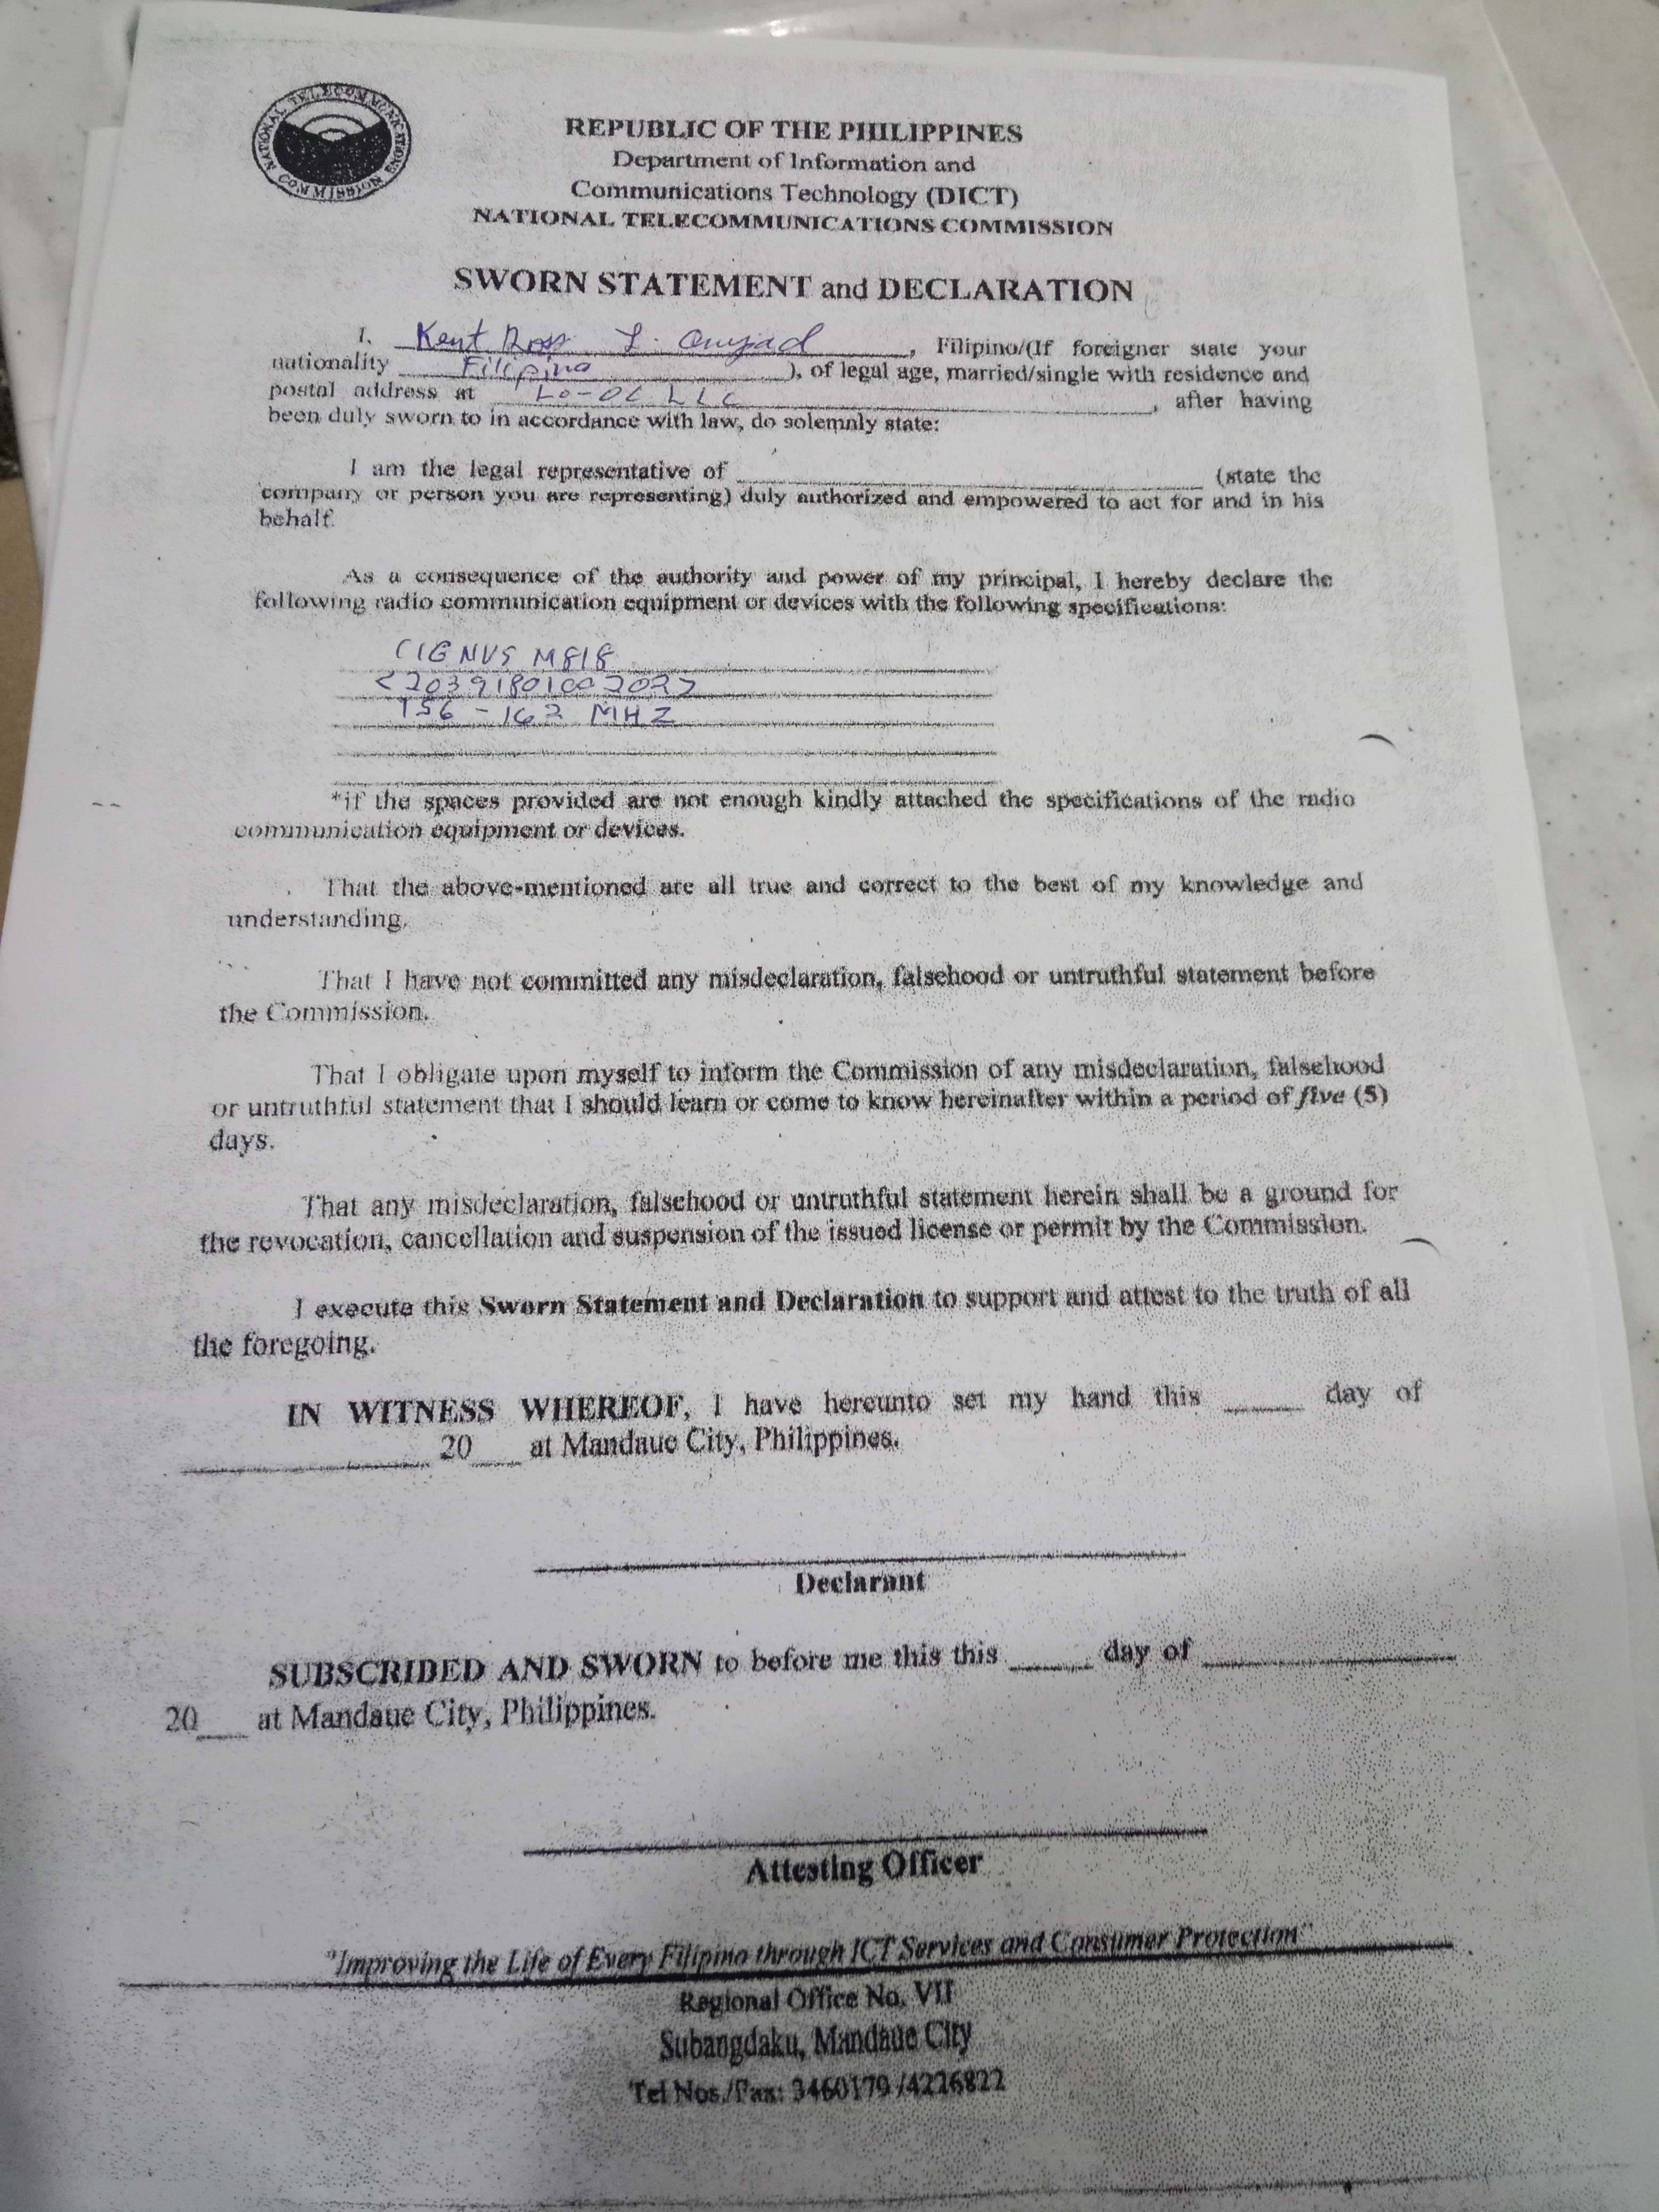 NATIONAL TELECOMMUNICATIONS COMMISSION
REPUBLIC OF THE PHILIPPINES
Department of Information and
Communications Technology (DICT)
NATIONAL TELECOMMUNICATIONS COMMISSION
SWORN STATEMENT and DECLARATION
I, Kent Ross L. , Filipino/(If foreigner state your
nationality Filipino ), of legal age, married/single with residence and
postal address at LO-OC LLC , after having
been duly sworn to in accordance with law, do solemnly state:
I am the legal representative of (state the
company or person you are representing) duly authorized and empowered to act for and in his
behalf.
As a consequence of the authority and power of my principal, I hereby declare the
following radio communication equipment or devices with the following specifications:
CIGNUS M818

156 - 162 MHZ
*if the spaces provided are not enough kindly attached the specifications of the radio
communication equipment or devices.
That the above-mentioned are all true and correct to the best of my knowledge and
understanding.
That I have not committed any misdeclaration, falsehood or untruthful statement before
the Commission.
That I obligate upon myself to inform the Commission of any misdeclaration, falsehood
or untruthful statement that I should learn or come to know hereinafter within a period of five (5)
days.
That any misdeclaration, falsehood or untruthful statement herein shall be a ground for
the revocation, cancellation and suspension of the issued license or permit by the Commission.
I execute this Sworn Statement and Declaration to support and attest to the truth of all
the foregoing.
IN WITNESS WHEREOF, I have hereunto set my hand this ____ day of
____ 20__ at Mandaue City, Philippines.
Declarant
SUBSCRIBED AND SWORN to before me this this ____ day of ____
20__ at Mandaue City, Philippines.
Attesting Officer
"Improving the Life of Every Filipino through ICT Services and Consumer Protection"
Regional Office No. VII
Subangdaku, Mandaue City
Tel Nos./Fax: 3460179 /4226822